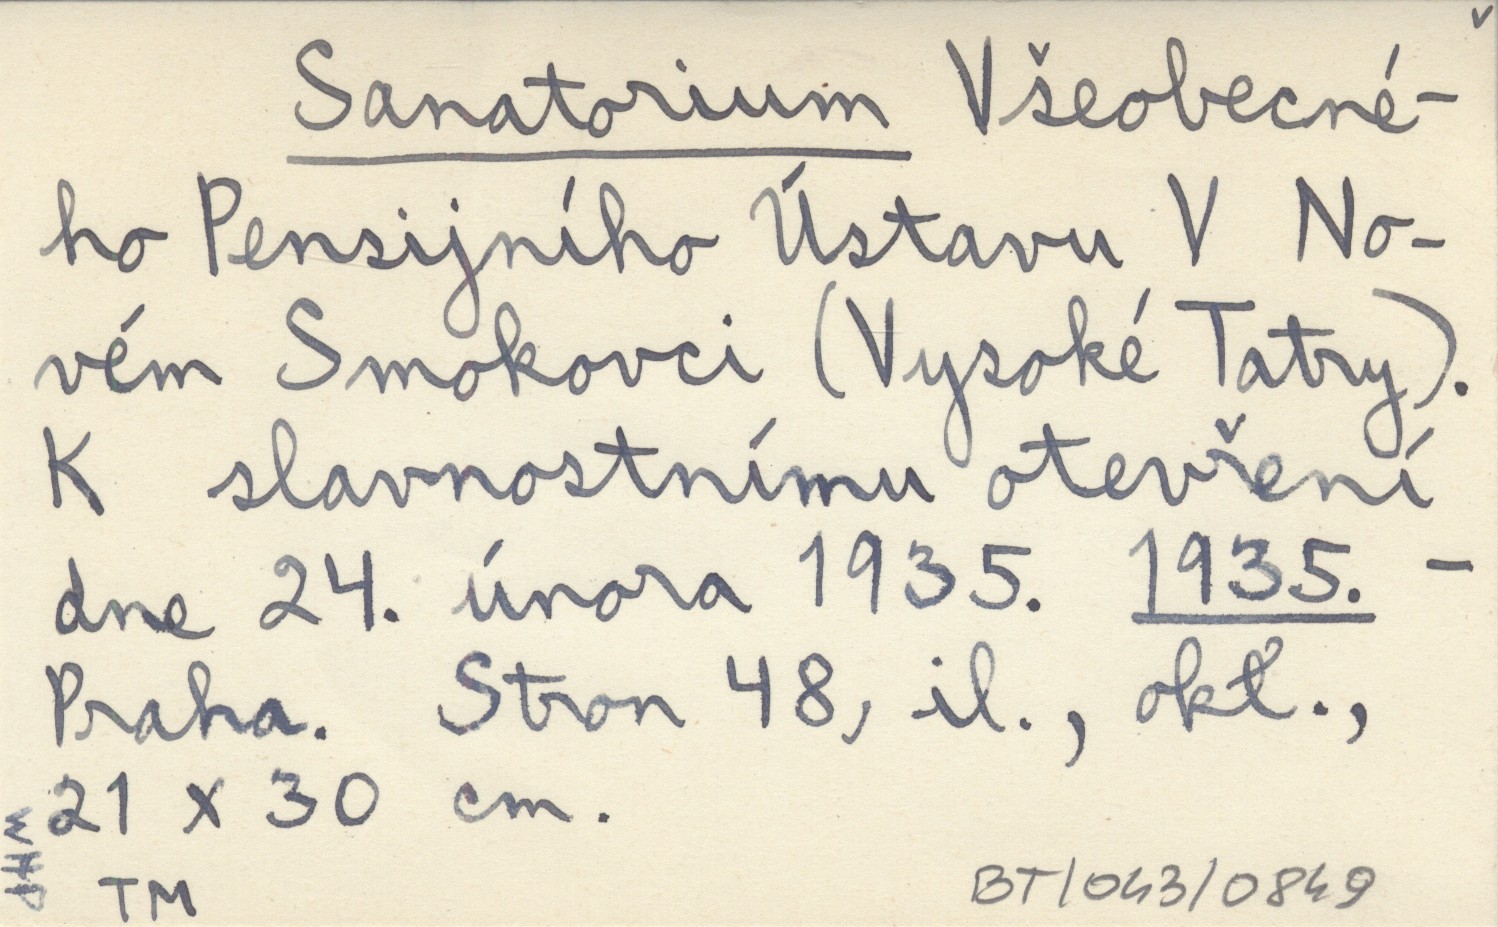 Sanatorium Všeobecné-
ho Pensijního Ústavu V No-
vém Smokovci (Vysoké Tatry).
K slavnostnímu otevření
dne 24. února 1935. 1935. -
Praha. Stron 48, il., okł.,
21 x 30 cm.
TM
BT/043/0849